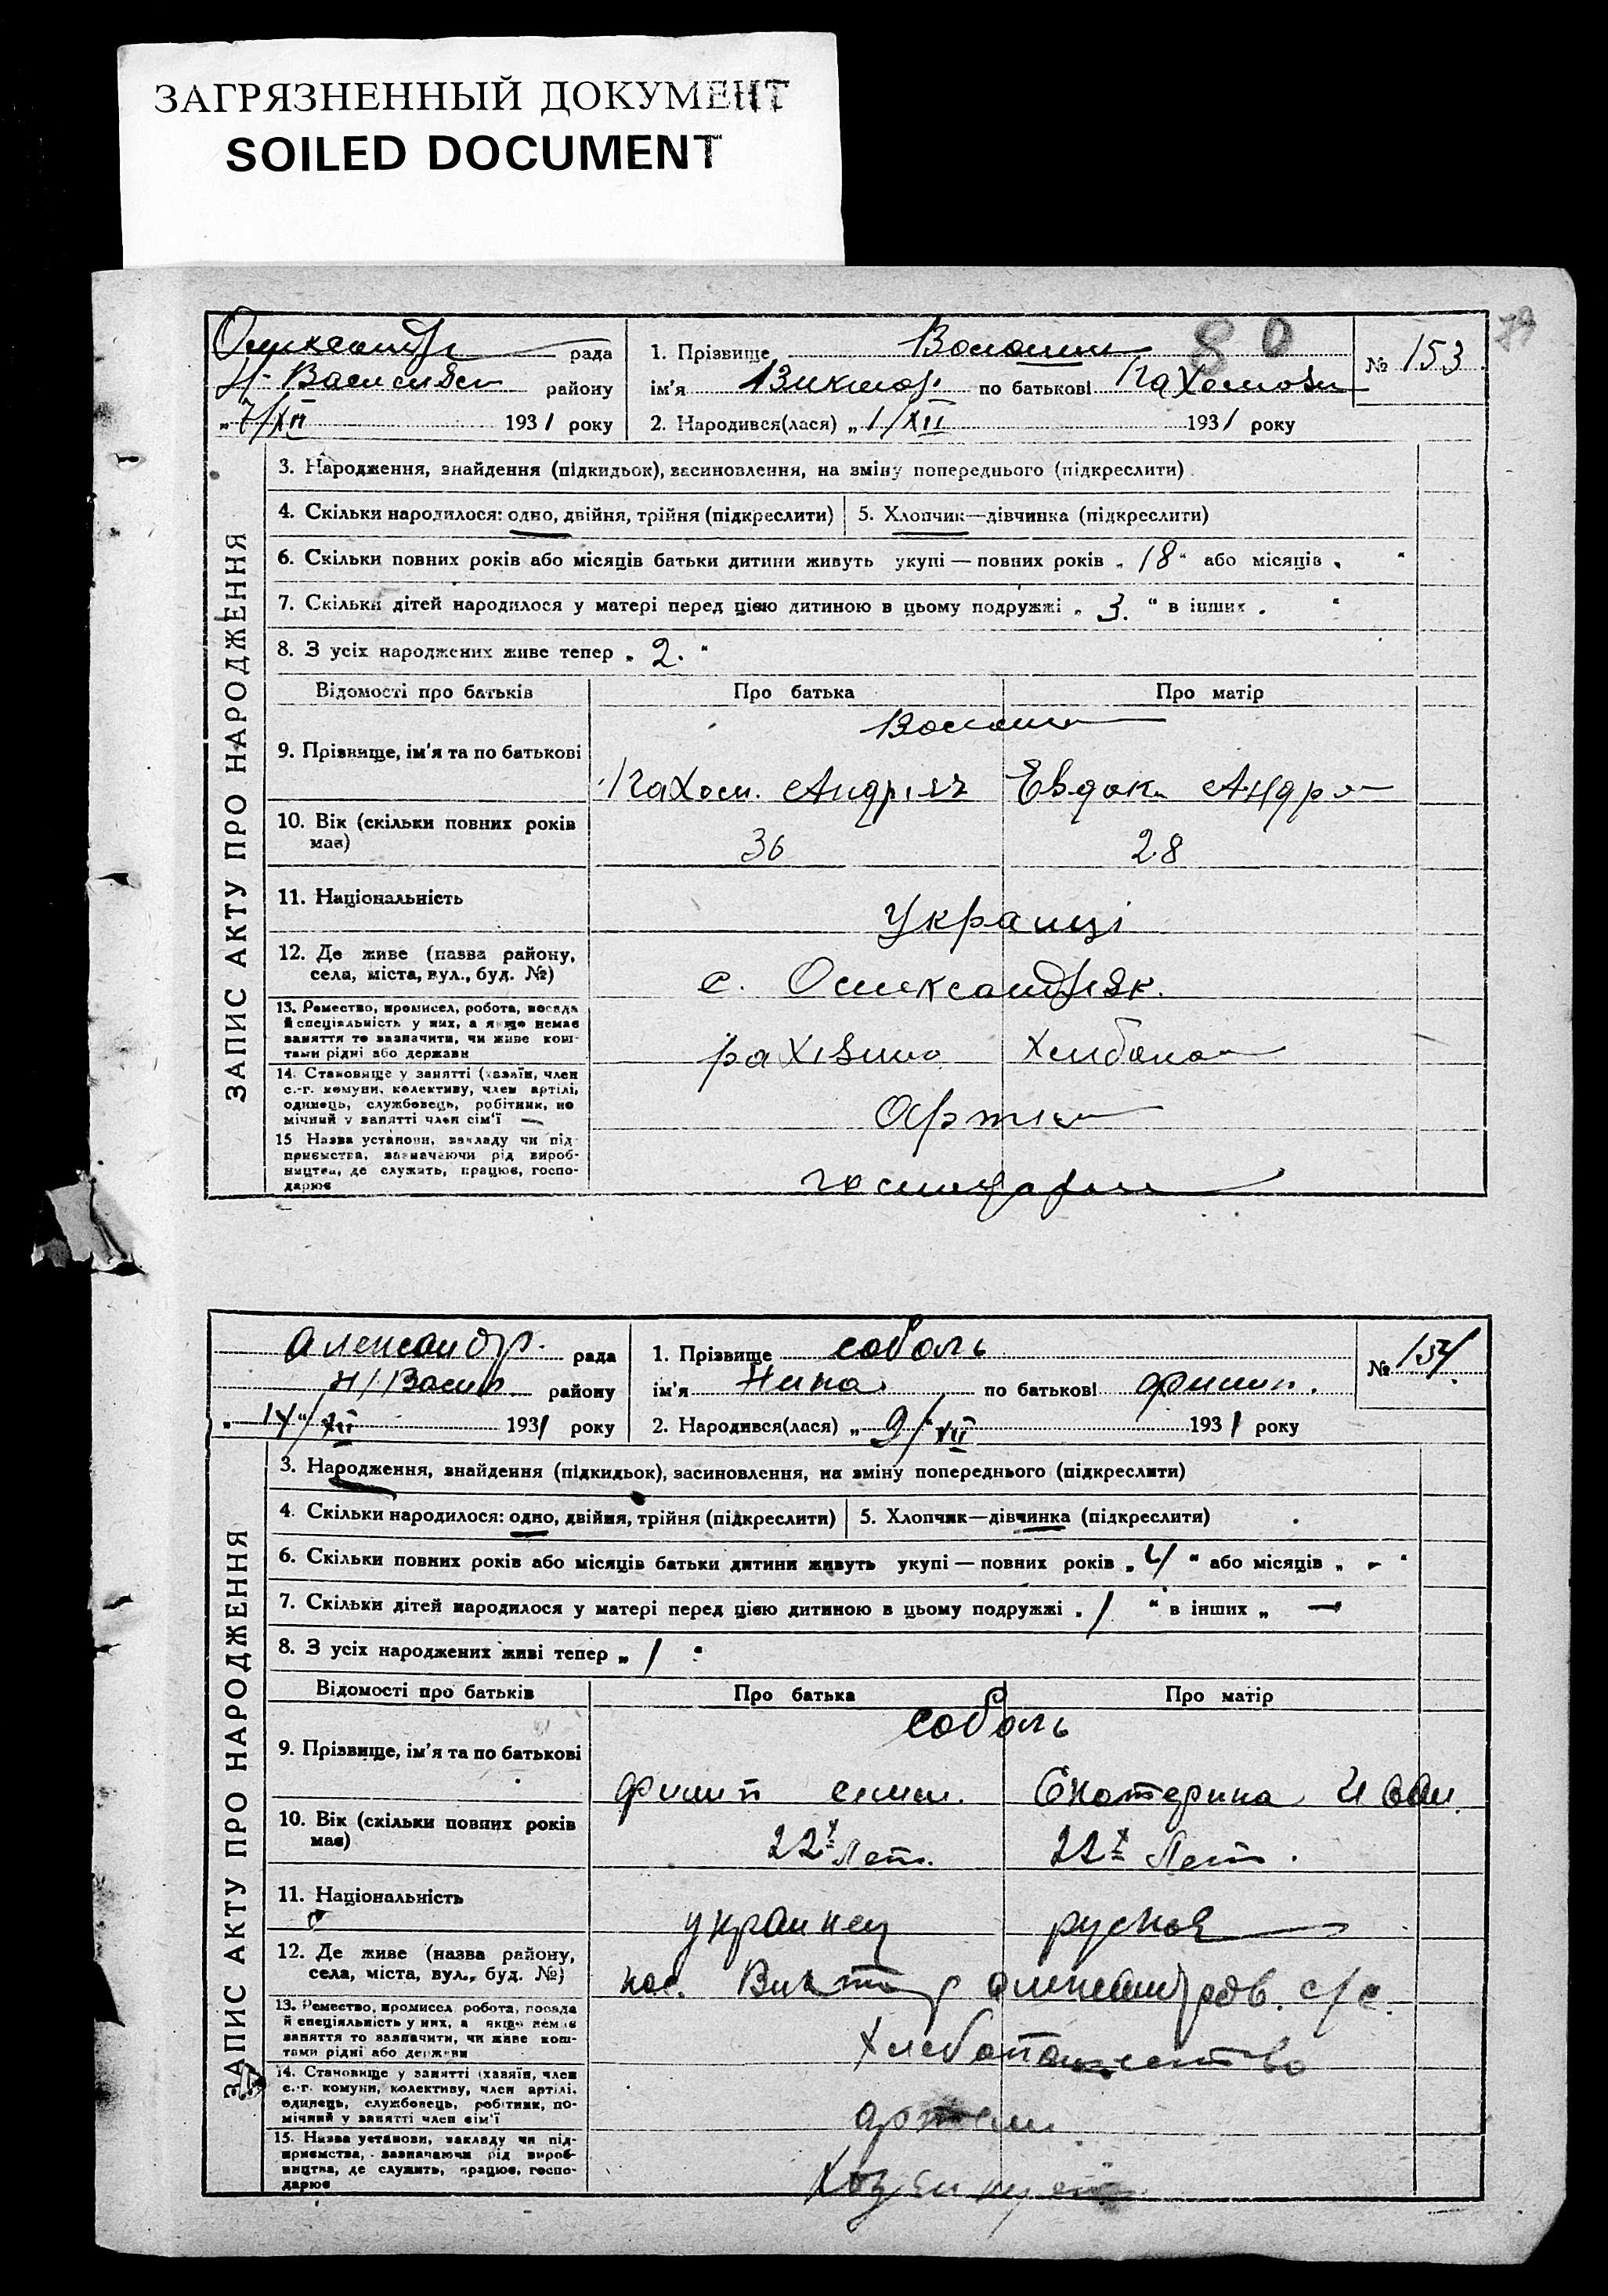 ЗАГРЯЗНЕННЫЙ ДОКУМЕНТ
SOILED DOCUMENT
80
79
рада
району
7/XII 1931 року
1. Прізвище Волошин
ім'я Виктор по батькові Пахомови
2. Народився(лася) „ 1/XII 1931 року
№ 153
ЗАПИС АКТУ ПРО НАРОДЖЕННЯ
3. Народження, знайдення (підкидьок), засиновлення, на зміну попереднього (підкреслити)
4. Скільки народилося: одно, двійня, трійня (підкреслити)
5. Хлопчик—дівчинка (підкреслити)
6. Скільки повних років або місяців батьки дитини живуть укупі — повних років „ 18 “ або місяців „ “
7. Скільки дітей народилося у матері перед цією дитиною в цьому подружжі „ 3. “ в інших „ “
8. З усіх народжених живе тепер „ 2. “
Відомості про батьків Про батька Про матір
9. Прізвище, ім'я та по батькові
Пахом. Андр Евдок Андр
10. Вік (скільки повних років має)
36 28
11. Національність
Украинці
12. Де живе (назва району, села, міста, вул., буд. №)
с.
13. Ремество, промисел, робота, посада
й спеціяльність у них, а якщо немає
заняття то зазначити, чи живе кош-
тами рідні або держави
14. Становище у занятті (хазяїн, член
с.-г. комуни, колективу, член артілі,
одинець, службовець, робітник, по
мічний у занятті член сім'ї
15 Назва установи, закладу чи під-
приємства, зазначаючи рід вироб-
ництва, де служить, працює, госпо-
дарює
Александр. рада
Н/Васил району
„ 14 “/XII 1931 року
1. Прізвище Соболь
ім'я Нина по батькові Филип.
2. Народився(лася) „ 9/XII 1931 року
№ 154
ЗАПИС АКТУ ПРО НАРОДЖЕННЯ
3. Народження, знайдення (підкидьок), засиновлення, на зміну попереднього (підкреслити)
4. Скільки народилося: одно, двійня, трійня (підкреслити)
5. Хлопчик—дівчинка (підкреслити)
6. Скільки повних років або місяців батьки дитини живуть укупі — повних років „ 4 “ або місяців „ - “
7. Скільки дітей народилося у матері перед цією дитиною в цьому подружжі „ 1 “ в інших „ —
8. З усіх народжених живі тепер „ 1 “
Відомості про батьків Про батька Про матір
Соболь
9. Прізвище, ім'я та по батькові
Филип Екатерина Иван.
10. Вік (скільки повних років має)
22х Лет. 22х Лет.
11. Національність
украинец руская
12. Де живе (назва району, села, міста, вул., буд. №)
пос. с/с.
13. Ремество, промисел, робота, посада
й спеціяльність у них, а якщо немає
заняття то зазначити, чи живе кош-
тами рідні або держави
Хлебопашество
14. Становище у занятті (хазяїн, член
с.-г. комуни, колективу, член артілі,
одинець, службовець, робітник, по-
мічний у занятті член сім'ї
артели
15. Назва установи, закладу чи під-
приємства, зазначаючи рід вироб-
ництва, де служить, працює, госпо-
дарює